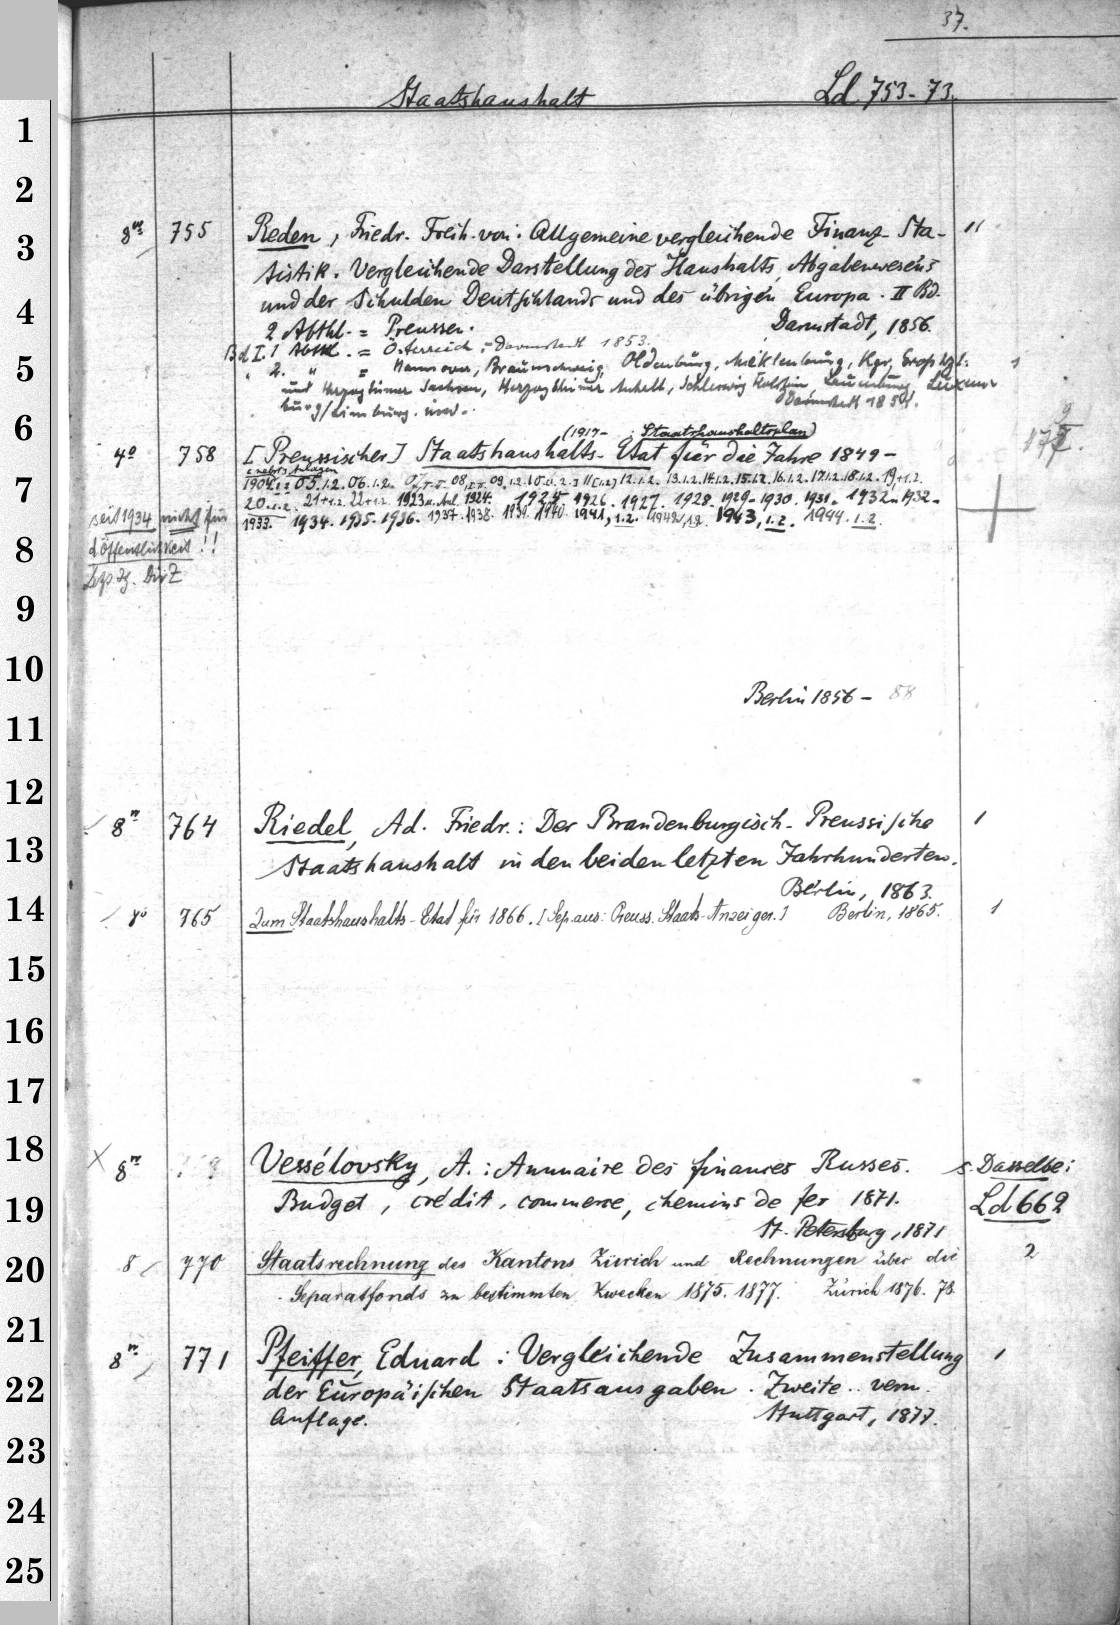 37.
Staatshaushalt Ld. 753-73.
1
2
3
4
5
6
7
8
9
10
11
12
13
14
15
16
17
18
19
20
21
22
23
24
25
8° 755 Reden, Friedr. Freih. von: Allgemeine vergleichende Finanz-Sta- "
tistik. Vergleichende Darstellung des Haushalts, Abgabenwesens
und der Schulden Deutschlands und des übrigen Europa. II Bd.
2 Abthl. = Preussen. Darmstadt, 1856.
Bd I. 1 Abthl. = Österreich, Darmstadt 1853.
" 2. " = Hannover, Braunschweig, Oldenburg, Mecklenburg, Kgr, 1
und Herzogthümer Sachsen, Herzogthümer Anhalt, Schleswig Holstein, Lauenburg, Luxem-
burg/Limburg. usw. Darmstadt 1854.
(1917- Staatshaushaltsplan)
4° 758 [Preussischer] Staatshaushalts-Etat für die Jahre 1849-
1904.1.2 05.1.2. 06.1.2. 12.1.2. 13.1.2. 14.1.2. 15.1.2. 16.1.2. 17.1.2. 18.1.2. 19.1.2.
20.1.2. 21+1.2. 22+1.2. 1923 1924. 1925 1926. 1927. 1928. 1929- 1930. 1931. 1932- 1932-
1933. 1934. 1935. 1936. 1937. 1938. 1939. 1940. 1941, 1.2. 1942/1.2. 1943, 1.2. 1944. 1.2.
seit 1934 nicht für
d Öffentlichkeit!!
Berlin 1856- 88
8° 764 Riedel, Ad. Friedr.: Der Brandenburgisch-Preussische 1
Staatshaushalt in den beiden letzten Jahrhunderten.
Berlin, 1863.
8° 765 Zum Staatshaushalts-Etat für 1866. [Sep. aus: Preuss. Staats-Anzeiger.] Berlin, 1865. 1
X 8° Vessélovsky, A.: Annuaire des finances Russes. s. Dasselbe:
Budget, crédit, commerce, chemins de fer 1871. Ld 662
St. Petersburg, 1871
8 770 Staatsrechnung des Kantons Zürich und Rechnungen über die 2
Separatfonds zu bestimmten Zwecken 1875. 1877. Zürich 1876. 78.
8° 771 Pfeiffer, Eduard: Vergleichende Zusammenstellung 1
der Europäischen Staatsausgaben. Zweite verm.
Auflage. Stuttgart, 1877.